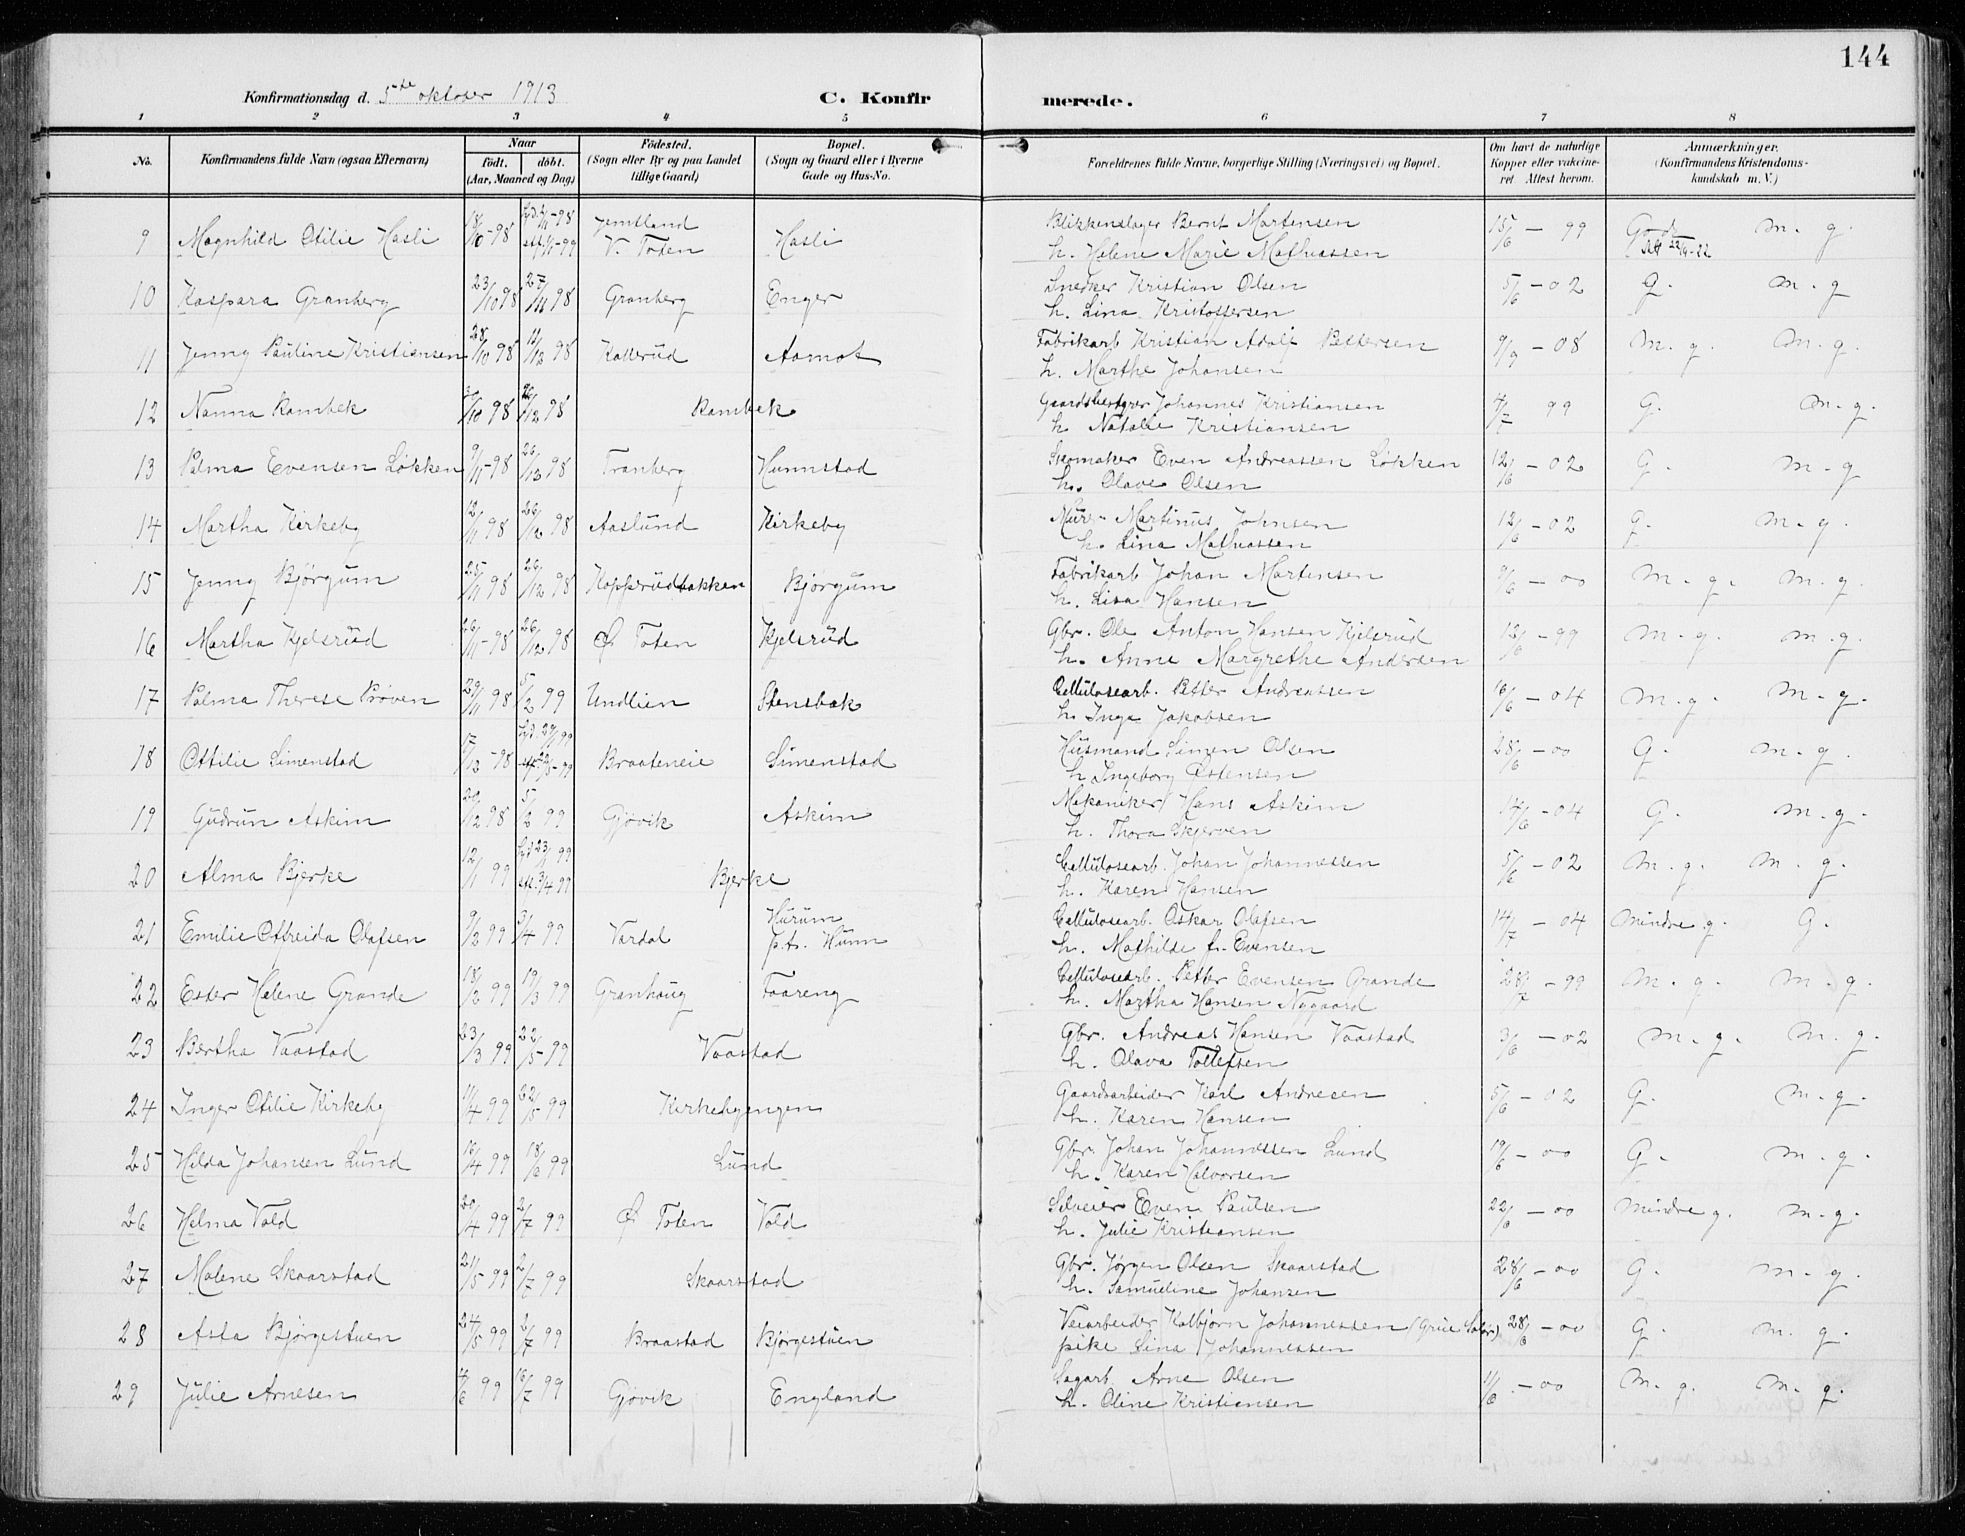 144
Konfirmationsdag d. 5te oktober 1913 C. Konfirmerede.
1 2 3 4 5 6 7 8
No. Konfirmandens fulde Navn (ogsaa Efternavn) Naar født. døbt. (Aar, Maaned og Dag) Fødested. (Sogn eller By og paa Landet tillige Gaard) Bopæl. (Sogn og Gaard eller i Byerne Gade og Hus-No. Forældrenes fulde Navne, borgerlige Stilling (Næringsvei) og Bopæl. Om havt de naturlige Kopper eller vakcineret Attest herom. Anmærkninger. (Konfirmandens Kristendomskundskab m. V.)
9 Magnhild Otilie Hasli 18/10-98 Jemtland V. Toten Hasli Blikkenslager Bernt Martensen 15/6 - 99 God m. g.
h. Helene Marie Mathiassen
10 Kaspara Granberg 23/10 98 27/11 98 Granberg Enger Snedker Kristian Olsen 5/6 - 02 G. m. g
h. Lina Kristoffersen
11 Jenny Pauline Kristiansen 28/10 98 11/12 98 Kallerud Aamot Fabrikarb Kristian Adolf Pettersen 9/9 - 08 m. g. m. g.
h. Marthe Johansen
12 Nanna Rambek 98 26/12 98 Rambek Gaardsbestyrer Johannes Kristiansen 4/7 99 G. m. g.
h. Natalie Kristiansen
13 Palma Evensen Løkken 9/11-98 26/12 98 Tranberg Hunnstad Skomaker Even Andreassen Løkken 12/6 - 02 G. m. g
h. Olave Olsen
14 Martha Kirkeby 12/11 98 26/12 98 Aaslund Kirkeby Murer Martinus Johnsen 12/6 - 02 g. m. g.
h. Lina Mathiassen
15 Jenny Bjørgum 25/11 98 26/12 98 Kopperudbakken Bjørgum Fabrikarb Johan Martensen 9/6 - 00 m. g. m. g.
h. Lisa Hansen
16 Martha Kjelsrud 26/11-98 26/12 98 Ø Toten Kjelsrud Gbr. Ole Anton Hansen Kjelsrud 12/6 - 99 m. g. m. g.
h. Anne Margrethe Andersen
17 Palma Therese Prøven 29/11 98 5/2 99 Undlien Stensbak Cellulosearb. Petter Andreassen 16/6 - 04 m. g. m. g.
h. Inga Jakobsen
18 Ottilie Simenstad 17/12-98 Braateneie Simenstad Husmand Simen Olsen 28/6 - 00 G. m. g.
h Ingeborg Østensen
19 Gudrun Askim 29/12 98 5/2 99 Gjøvik Askim Mekaniker Hans Askim 14/6 - 04 G. m. g.
h. Thora Skjerven
20 Alma Bjerke 12/1 99 Bjerke Cellulosearb. Johan Johannessen 5/6 - 02 m. g. m. g.
h. Karen Hansen
21 Emilie Otbreida Olafsen 9/2 99 3/4 99 Vardal Hurum p.t. Hunn Cellulosearb. Oskar Olafsen 14/7 - 04 mindre g. G.
h. Mathilde f. Evensen
22 Ester Helene Grande 18/2 99 19/3 99 Granhaug Faareng Cellulosearb. Petter Evensen Grande 28/7 - 99 m. g. m. g.
h. Martha Hansen Nygaard
23 Bertha Vaastad 23/3 99 22/5-99 Vaastad Gbr. Andreas Hansen Vaastad 3/6 - 02 m. g. m. g.
h. Olava Tollefsen
24 Inger Otilie Kirkeby 11/4 99 22/5 99 Kirkebyengen Gaardsarbeider Karl Andresen 5/6 - 02 G. m. g.
h. Karen Hansen
25 Hilda Johansen Lund 16/4 99 18/6 99 Lund Gbr. Johan Johannessen Lund 19/6 - 00 G. m. g.
h. Karen Halvorsen
26 Helma Vold 20/4 99 2/7 99 Ø Toten Vold Selveier Even Paulsen 22/6 - 00 mindre g. m. g.
h. Julie Kristiansen
27 Malene Skaarstad 21/5 99 2/7 99 Skaarstad Gbr. Jørgen Olsen Skaarstad 28/6 - 00 G. m. g.
h. Samueline Johansen
28 Asta Bjørgestuen 24/5 99 2/7 99 Braastad Bjørgestuen Veiarbeider Kolbjørn Johannessen (Grue Solør) 28/6 - 00 G. m. g.
pike Lina Johannessen
29 Julie Arnesen 4/6 99 16/7 99 Gjøvik England Sagarb. Arne Olsen 11/6 - 00 m. g. m. g.
h. Oline Kristiansen